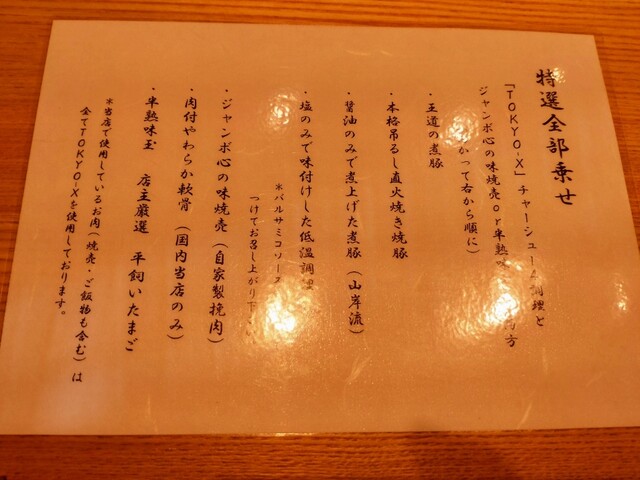 特選全部乗せ
「TOKYO-X」チャーシュー 調理と
ジャンボ心の味焼売or半熟味 方
かって右から順に)
・王道の煮豚
・本格吊るし直火焼き焼豚
・醤油のみで煮上げた煮豚(山岸流)
・塩のみで味付けした低温調理
*バルサミコソース
つけてお召し上がり下さい
・ジャンボ心の味焼売(自家製挽肉)
・肉付やわらか軟骨(国内当店のみ)
・半熟味玉 店主厳選 平飼いたまご
*当店で使用しているお肉(焼売・ご飯物も含む)は
全てTOKYO-Xを使用しております。